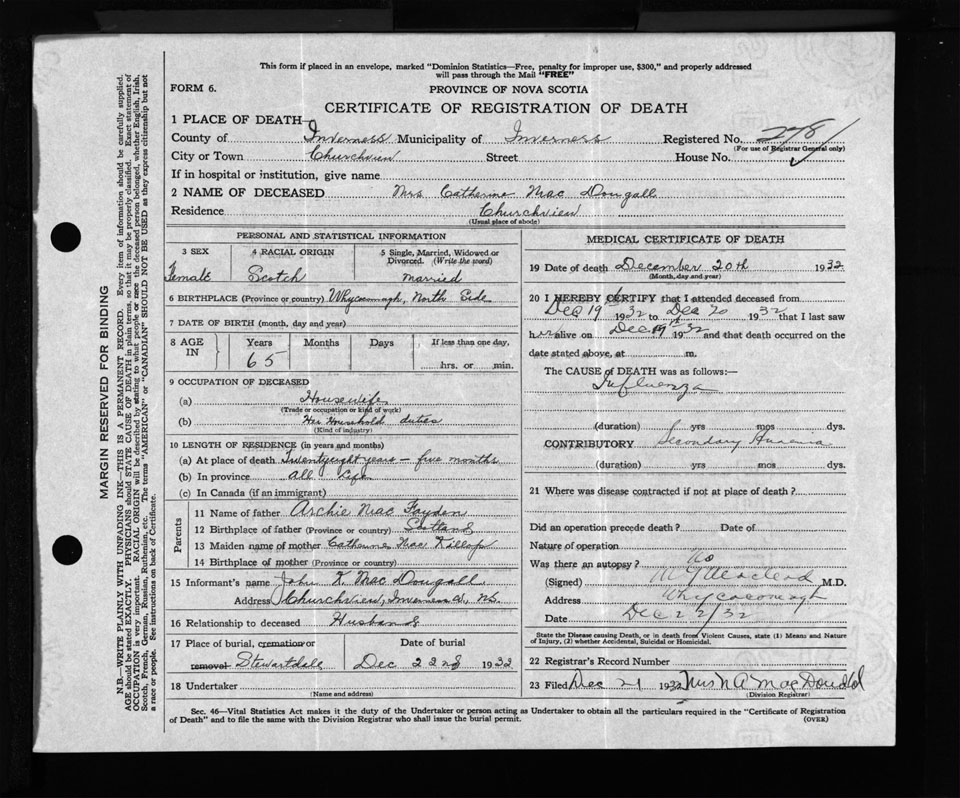 This form if placed in an envelope, marked "Dominion Statistics—Free, penalty for improper use, $300," and properly addressed
will pass through the Mail "FREE"
FORM 6.
PROVINCE OF NOVA SCOTIA
CERTIFICATE OF REGISTRATION OF DEATH
1 PLACE OF DEATH—
County of Inverness Municipality of Inverness Registered No. 278
(For use of Registrar General only)
City or Town Churchview Street House No.
If in hospital or institution, give name
2 NAME OF DECEASED Mrs Catherine Mac Dougall
Residence Churchview
(Usual place of abode)
PERSONAL AND STATISTICAL INFORMATION
3 SEX 4 RACIAL ORIGIN 5 Single, Married, Widowed or Divorced. (Write the word)
Female Scotch married
6 BIRTHPLACE (Province or country) Whycocomagh, North Side
7 DATE OF BIRTH (month, day and year)
8 AGE IN Years Months Days If less than one day,
65 hrs. or min.
9 OCCUPATION OF DECEASED
(a) Housewife
(Trade or occupation or kind of work)
(b) Her Household duties
(Kind of industry)
10 LENGTH OF RESIDENCE (in years and months)
(a) At place of death Twentyeight years — five months
(b) In province All Life
(c) In Canada (if an immigrant)
Parents
11 Name of father Archie Mac Fayden
12 Birthplace of father (Province or country) Scotland
13 Maiden name of mother Catherine Mac Killop
14 Birthplace of mother (Province or country)
15 Informant's name John K. Mac Dougall
Address Churchview, Inverness Co, N.S.
16 Relationship to deceased Husband
17 Place of burial, cremation or removal Stewartdale
Date of burial Dec 22nd 1932
18 Undertaker
(Name and address)
MEDICAL CERTIFICATE OF DEATH
19 Date of death December 20th 1932
(Month, day and year)
20 I HEREBY CERTIFY that I attended deceased from
Dec 19 1932 to Dec 20 1932 that I last saw
her alive on Dec 19 1932 and that death occurred on the
date stated above, at m.
The CAUSE of DEATH was as follows:—
Influenza
(duration) yrs mos dys.
CONTRIBUTORY Secondary Anaemia
(duration) yrs mos dys.
21 Where was disease contracted if not at place of death?
Did an operation precede death? Date of
Nature of operation
Was there an autopsy? No
(Signed) MacLeod M.D.
Address Whycocomagh
Date Dec 22/32
State the Disease causing Death, or in death from Violent Causes, state (1) Means and Nature
of Injury, (2) whether Accidental, Suicidal or Homicidal.
22 Registrar's Record Number
23 Filed Dec 21 1932 Mrs N A MacDonald
(Division Registrar)
Sec. 46—Vital Statistics Act makes it the duty of the Undertaker or person acting as Undertaker to obtain all the particulars required in the "Certificate of Registration
of Death" and to file the same with the Division Registrar who shall issue the burial permit.
(OVER)
MARGIN RESERVED FOR BINDING
N.B.—WRITE PLAINLY WITH UNFADING INK—THIS IS A PERMANENT RECORD. Every item of information should be carefully supplied.
AGE should be stated EXACTLY. PHYSICIANS should STATE CAUSE OF DEATH in plain terms, so that it may be properly classified. Exact statement of
OCCUPATION is very important. RACIAL ORIGIN will be described by stating to what people or race the deceased person belonged, whether English, Irish,
Scotch, French, German, Russian, Ruthenian, etc. The terms "AMERICAN" or "CANADIAN" SHOULD NOT BE USED as they express citizenship but not
a race or people. See instructions on back of Certificate.